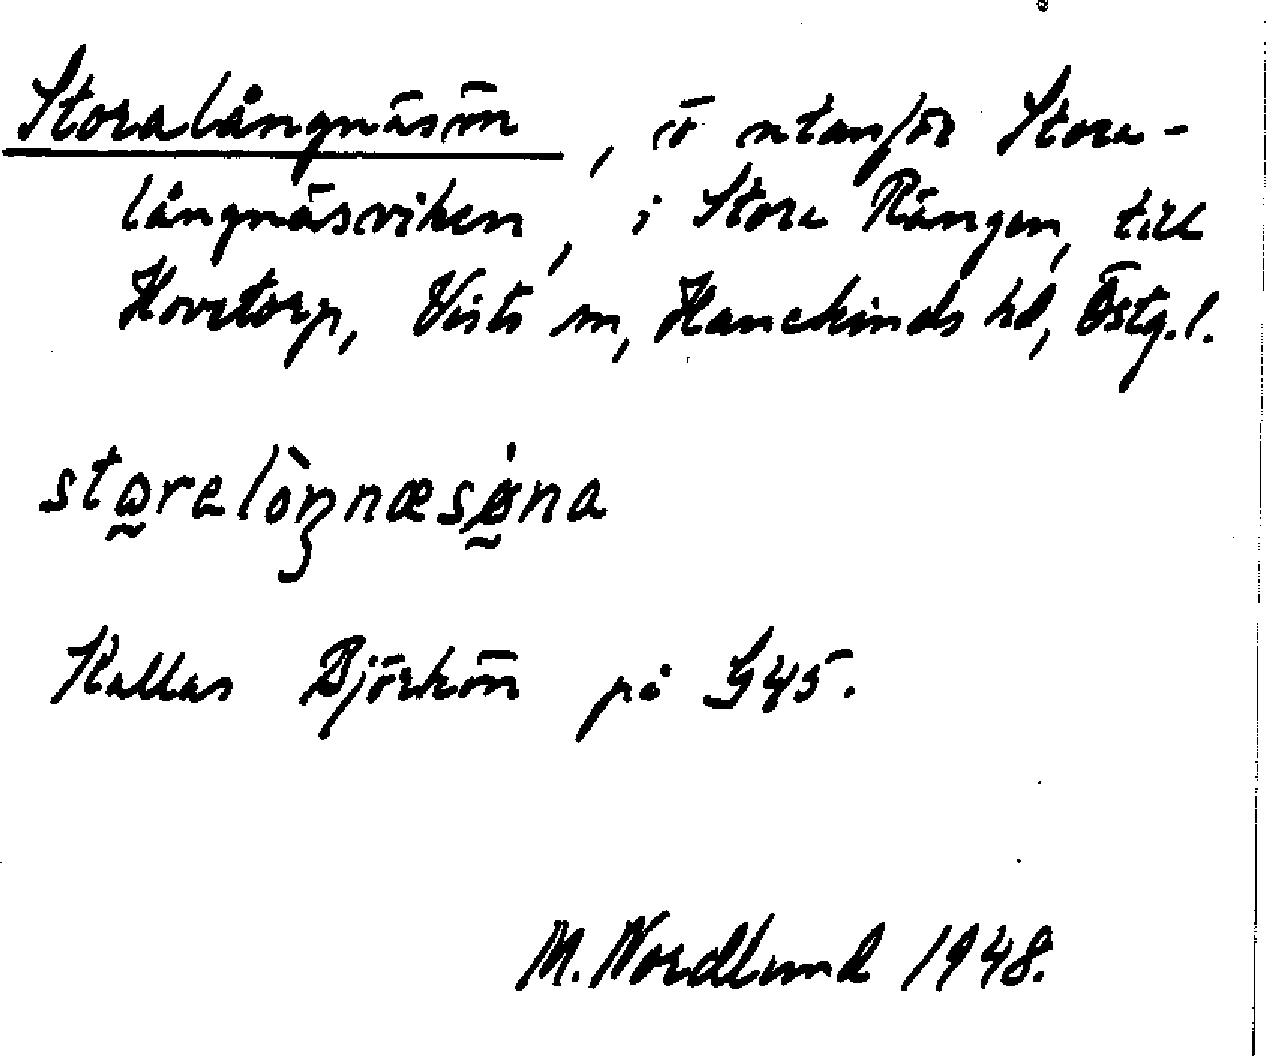 Storalångnäsön, ö utanför Stora-
långnäsviken, i Stora Rängen, till
Hovetorp, Vists sn, Hanekinds hd, Östg.l.
storalòŋnæsǿna
Kallas Björkön på G45.
M. Nordlund 1948.